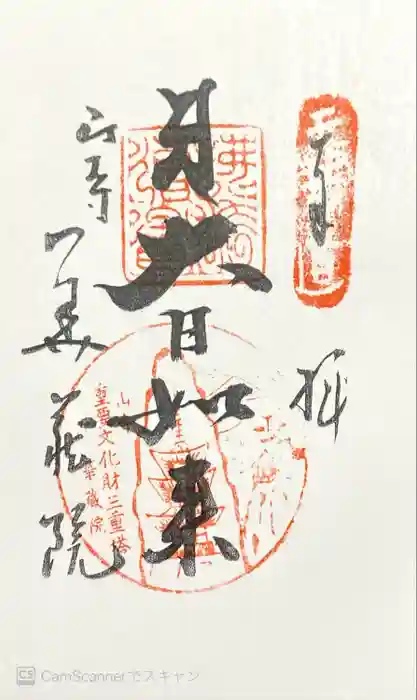 拝
月大日如来
山
重要文化財三重塔
華蔵院
山寺 華蔵院
CS CamScannerでスキャン